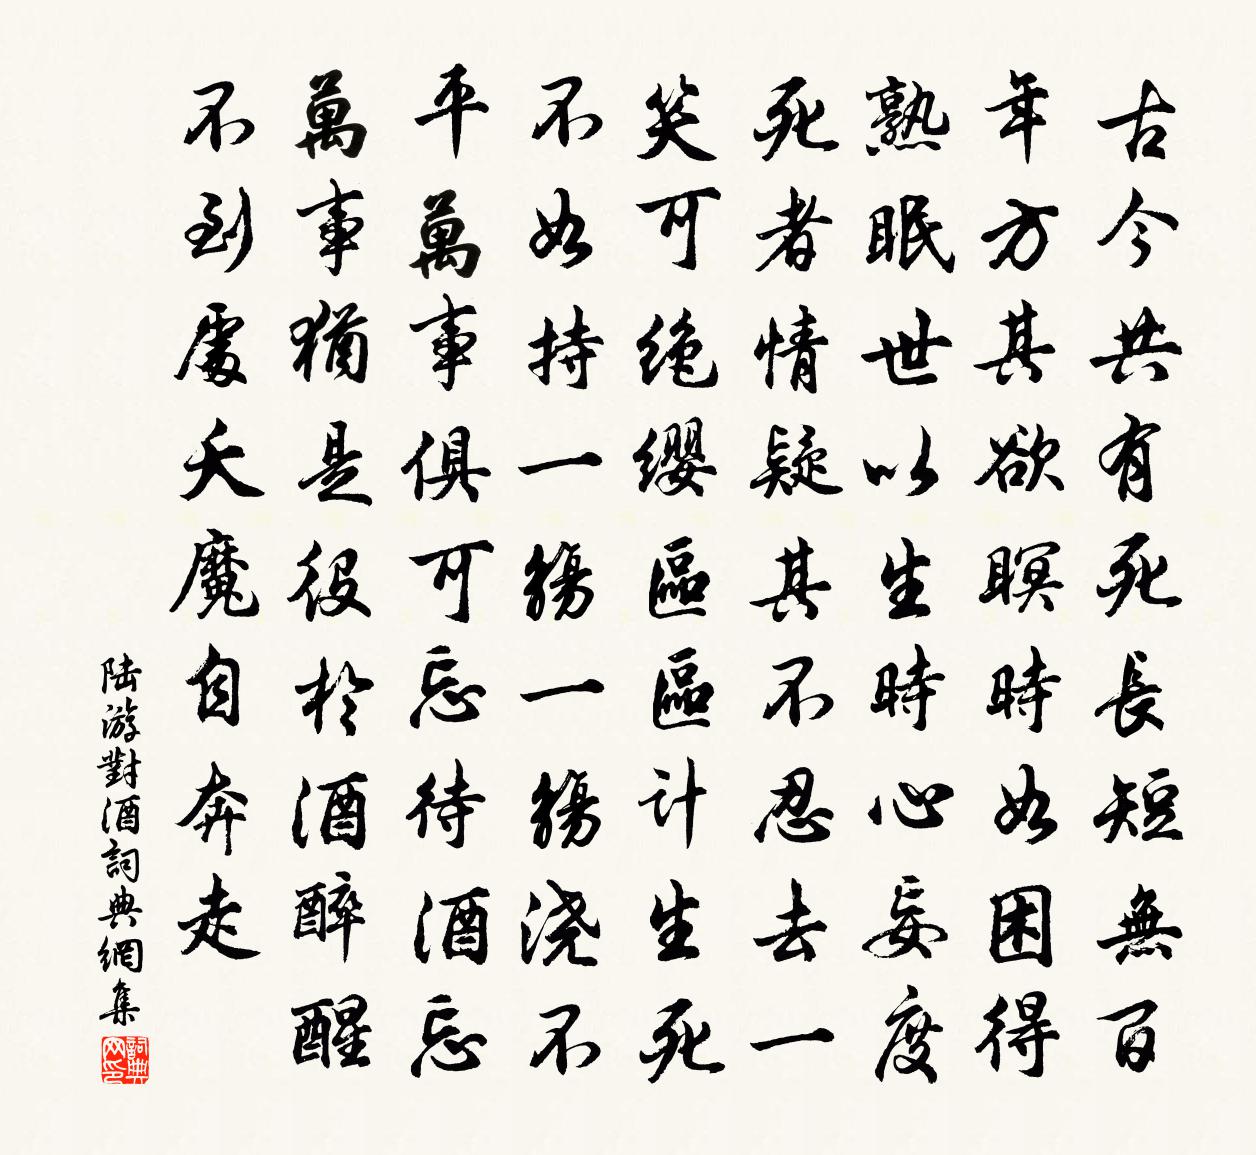 古今共有死長短無百
年方其欲瞑時如困得
熟眠世以生時心妄度
死者情疑其不忍去一
笑可絶纓區區計生死
不如持一觴一觴澆不
平萬事俱可忘待酒忘
萬事猶是役於酒醉醒
不到處天魔自奔走
陸游對酒詞典網集
詞典网印